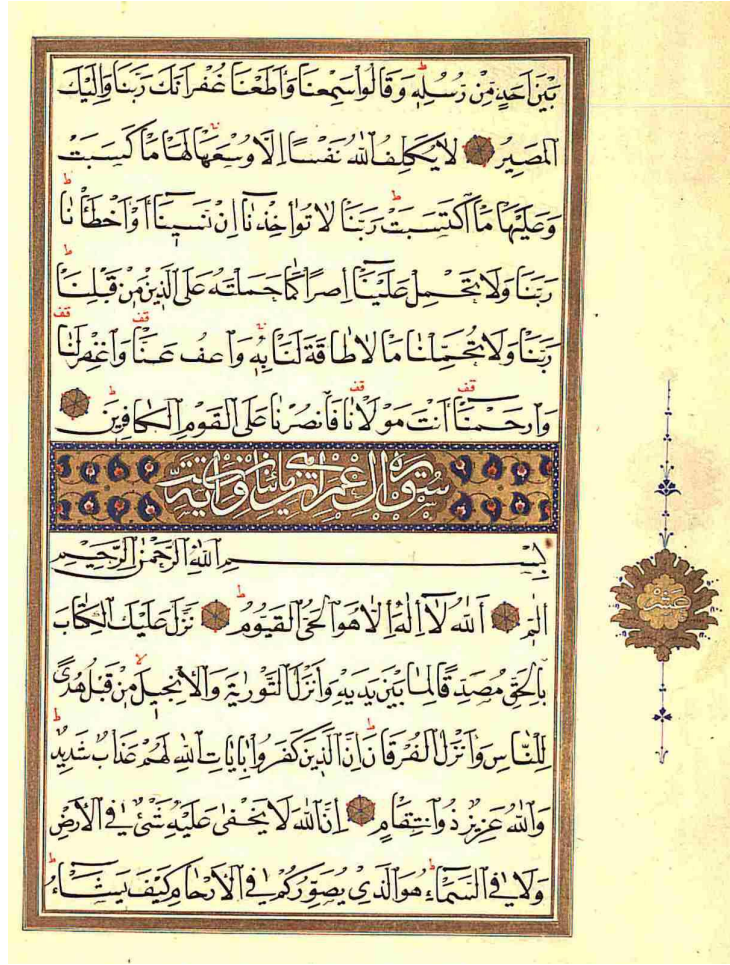 بَيْنَ اَحَدٍ مِنْ رُسُلِهٖ وَقَالُوا سَمِعْنَا وَاَطَعْنَا غُفْرَانَكَ رَبَّنَا وَاِلَيْكَ
الْمَصِيرُ لَا يُكَلِّفُ اللّٰهُ نَفْسًا اِلَّا وُسْعَهَا لَهَا مَا كَسَبَتْ
وَعَلَيْهَا مَا اكْتَسَبَتْ رَبَّنَا لَا تُؤَاخِذْنَا اِنْ نَسِينَا اَوْ اَخْطَأْنَا
رَبَّنَا وَلَا تَحْمِلْ عَلَيْنَا اِصْرًا كَمَا حَمَلْتَهُ عَلَى الَّذِينَ مِنْ قَبْلِنَا
رَبَّنَا وَلَا تُحَمِّلْنَا مَا لَا طَاقَةَ لَنَا بِهٖ وَاعْفُ عَنَّا وَاغْفِرْ لَنَا
وَارْحَمْنَا اَنْتَ مَوْلٰينَا فَانْصُرْنَا عَلَى الْقَوْمِ الْكَافِرِينَ
سورة آل عمران مائتا آية
بِسْمِ اللّٰهِ الرَّحْمٰنِ الرَّحِيمِ
الٓمٓ اَللّٰهُ لَا اِلٰهَ اِلَّا هُوَ الْحَيُّ الْقَيُّومُ نَزَّلَ عَلَيْكَ الْكِتَابَ
بِالْحَقِّ مُصَدِّقًا لِمَا بَيْنَ يَدَيْهِ وَاَنْزَلَ التَّوْرٰيةَ وَالْاِنْجِيلَ مِنْ قَبْلُ هُدًى
لِلنَّاسِ وَاَنْزَلَ الْفُرْقَانَ اِنَّ الَّذِينَ كَفَرُوا بِاٰيَاتِ اللّٰهِ لَهُمْ عَذَابٌ شَدِيدٌ
وَاللّٰهُ عَزِيزٌ ذُو انْتِقَامٍ اِنَّ اللّٰهَ لَا يَخْفٰى عَلَيْهِ شَيْءٌ فِي الْاَرْضِ
وَلَا فِي السَّمَاءِ هُوَ الَّذِي يُصَوِّرُكُمْ فِي الْاَرْحَامِ كَيْفَ يَشَاءُ
عشر